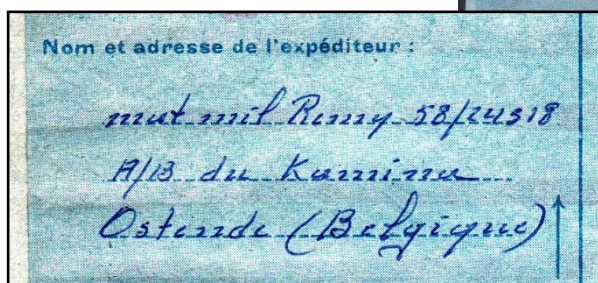 Nom et adresse de l'expéditeur :
mat mil Remy 58/24518
A/B du Kamina
Ostende (Belgique)